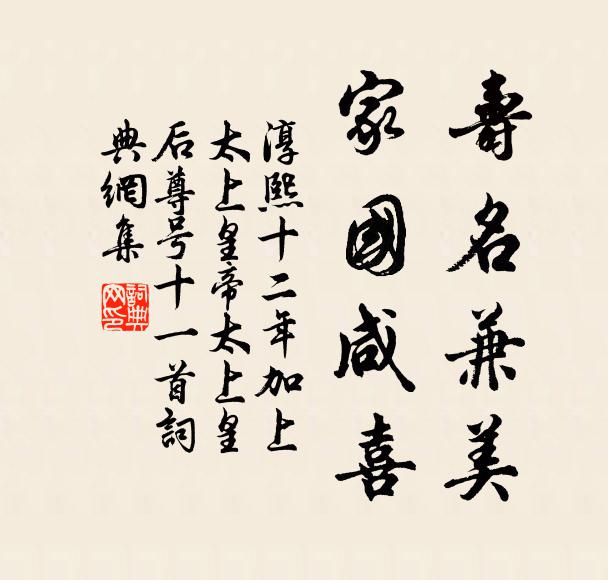 壽名兼美
家國咸喜
淳熙十二年加上
太上皇帝太上皇
后尊号十一首詞
典網集
詞典網印